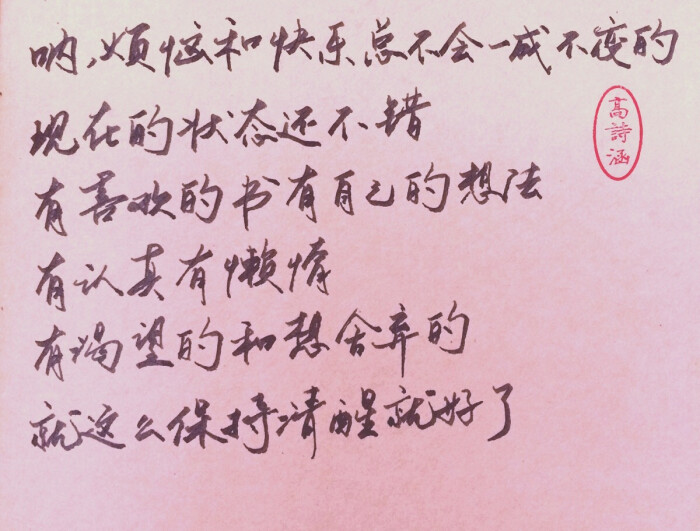 呐,烦恼和快乐总不会一成不变的
现在的状态还不错
有喜欢的书有自己的想法
有认真有懒惰
有渴望的和想舍弃的
就这么保持清醒就好了
高詩涵